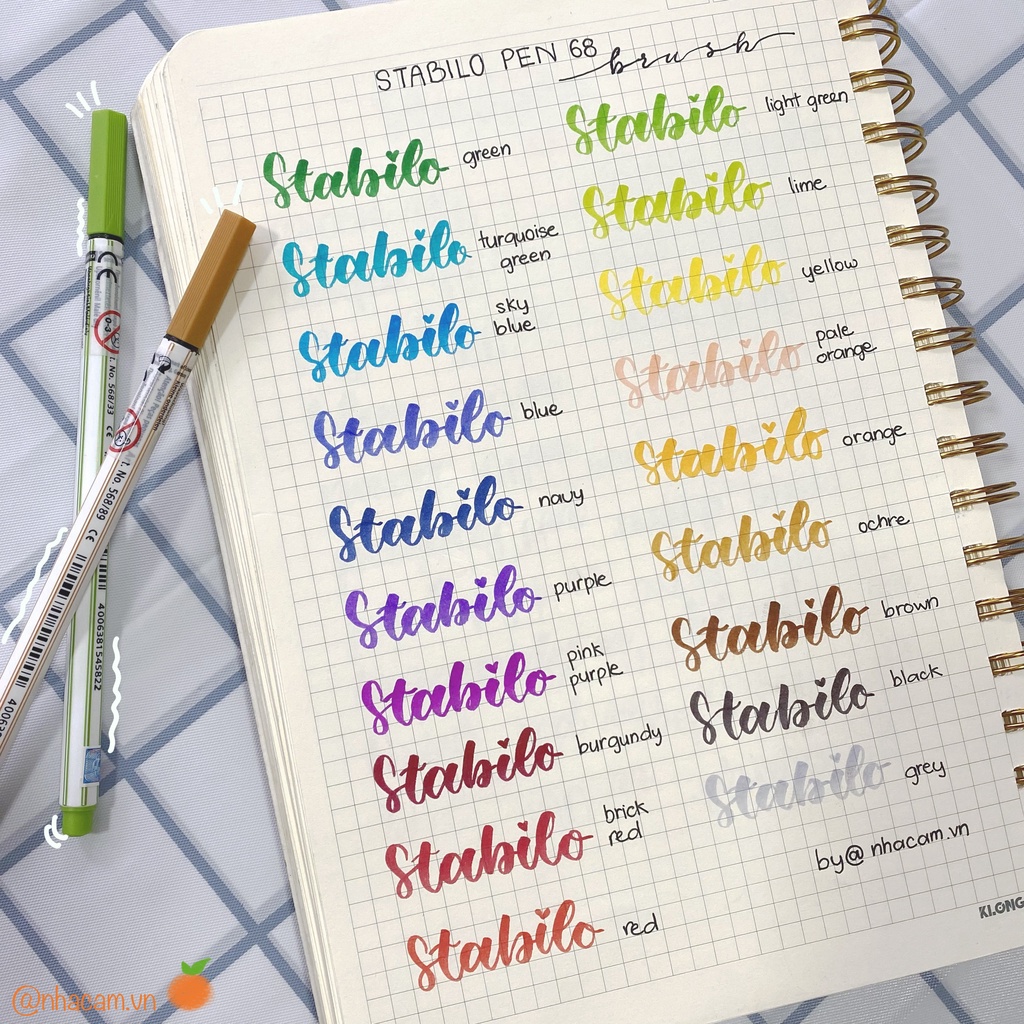 STABILO PEN 68 brush
Stabilo green
Stabilo turquoise
green
Stabilo sky
blue
Stabilo blue
Stabilo navy
Stabilo purple
Stabilo pink
purple
Stabilo burgundy
Stabilo brick
red
Stabilo red
Stabilo light green
Stabilo lime
Stabilo yellow
Stabilo pale
orange
Stabilo orange
Stabilo ochre
Stabilo brown
Stabilo black
Stabilo grey
by@nhacam.vn
KLONG
CE
0-3
Art. No. 568/33 CE
4006381545822
Art. No. 568/89 CE
@nhacam.vn